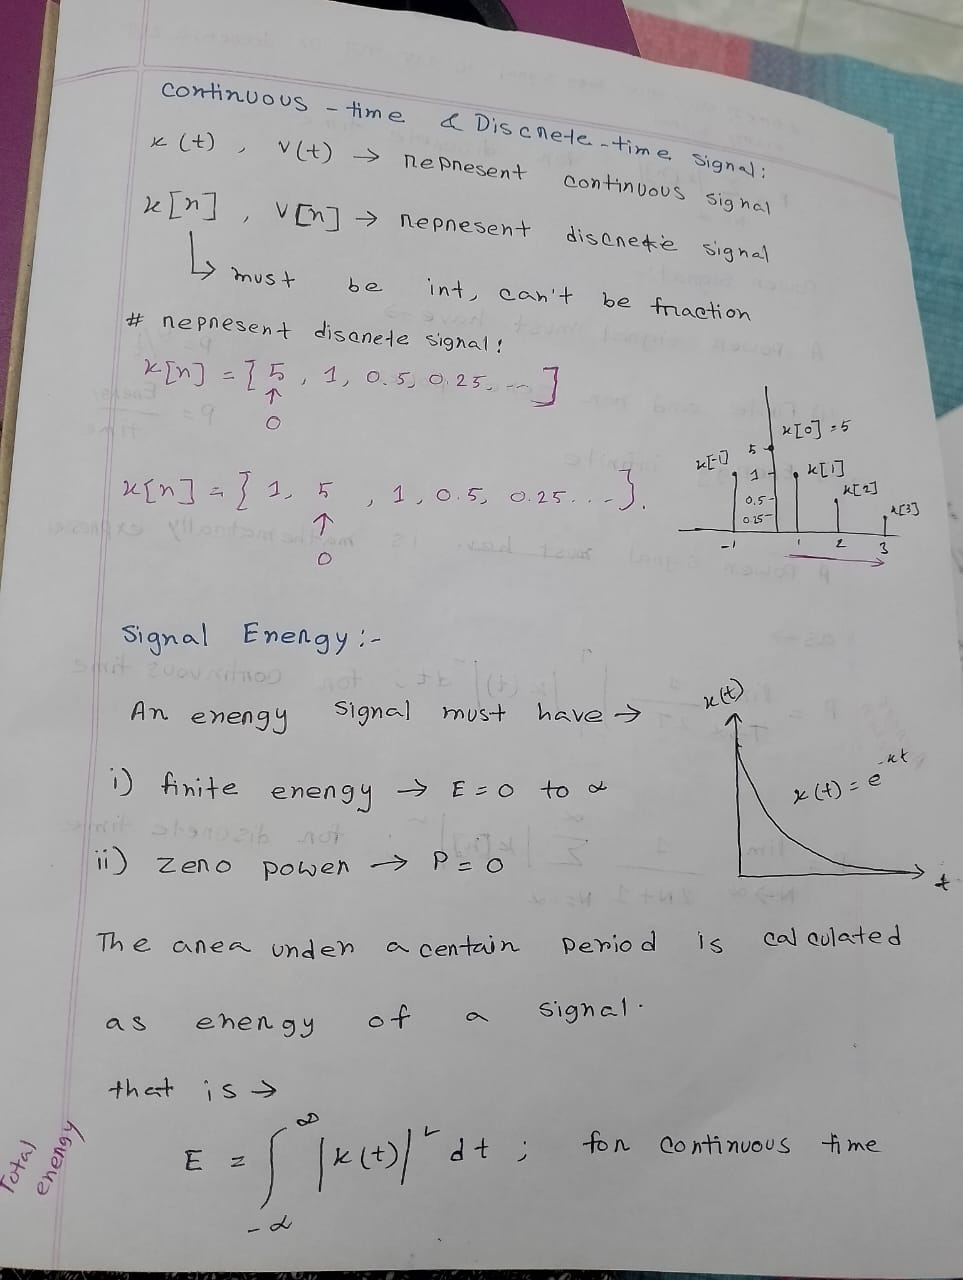 continuous - time & Discrete-time signal:
x(t), v(t) → represent continuous signal
x[n], v[n] → represent discrete signal
↳ must be int, can't be fraction
# represent discrete signal:
x[n] = [5, 1, 0.5, 0.25, ...]
↑
0
x[n] = {1, 5, 1, 0.5, 0.25...}.
↑
0
x[0] = 5
x[-1]
5
1
x[1]
0.5
x[2]
0.25
x[3]
-1 1 2 3
Signal Energy:-
An energy signal must have →
i) finite energy → E = 0 to α
ii) zero power → P = 0
x(t)
x(t) = e
t
The area under a certain period is calculated
as energy of a signal.
that is →
Total energy
E = ∫_{-α}^{∞} |x(t)|² dt ; for continuous time